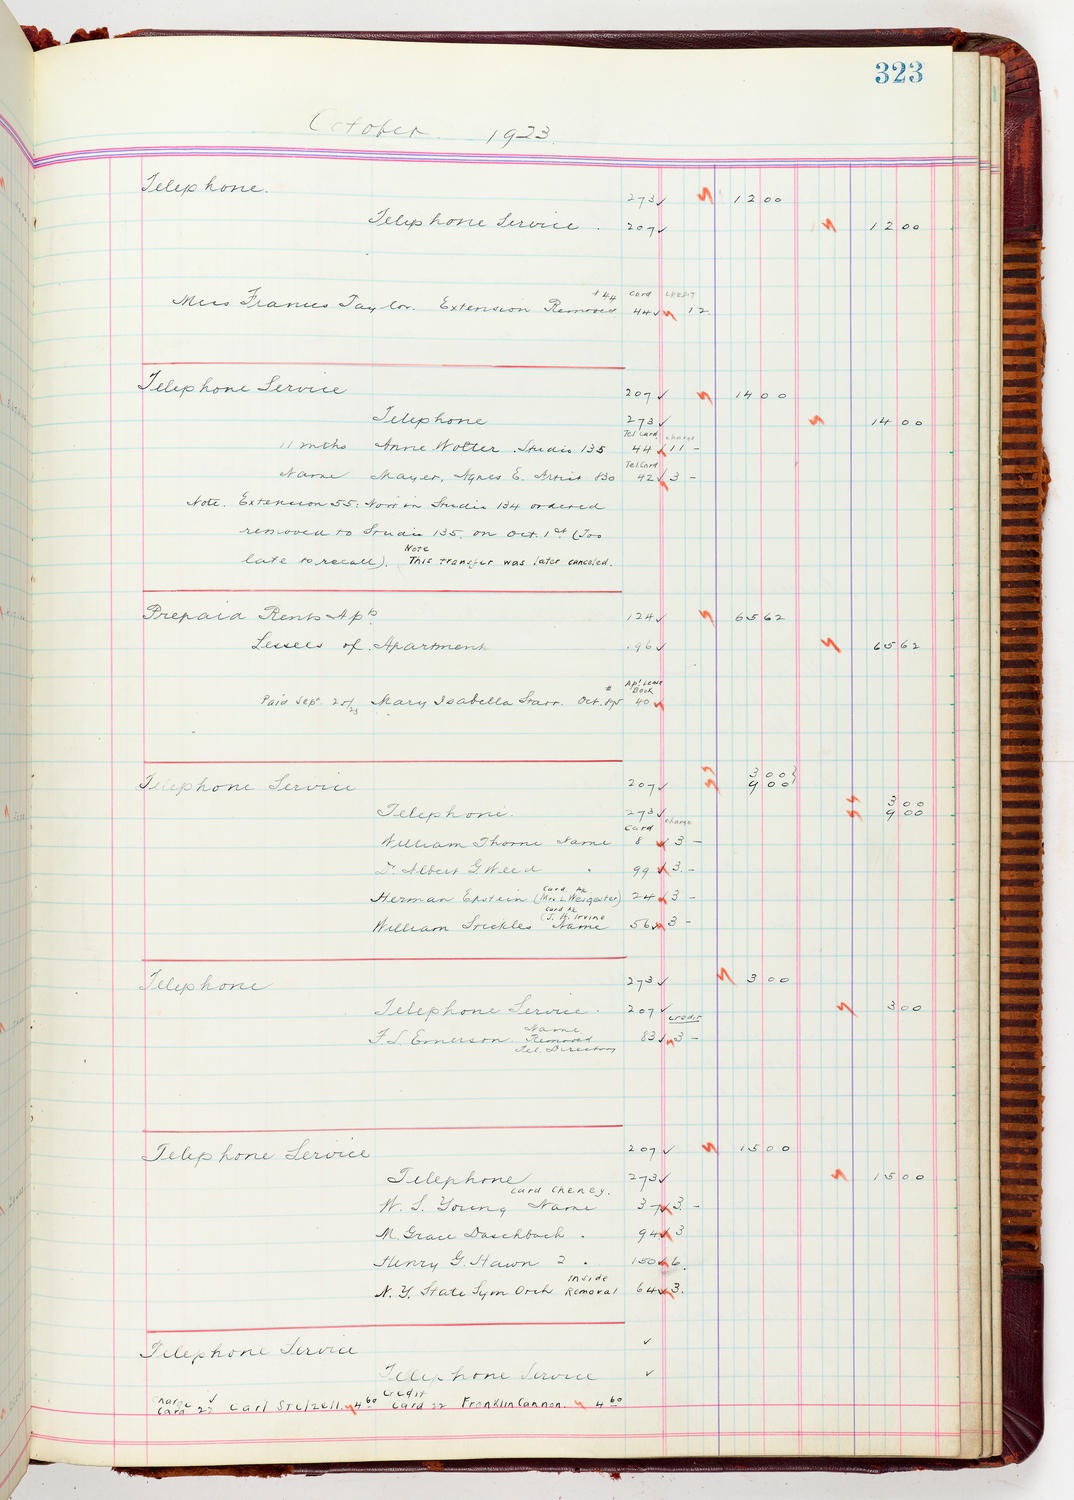 323
October 1923.
Telephone. 273 ✓ 12 00
Telephone Service. 207 ✓ 12 00
+44 Card CREDIT
Miss Frances Taylor. Extension Removed 44 ✓ 12.
Telephone Service 207 ✓ 14 00
Telephone 273 ✓ 14 00
Tel Card charge
11 mths Anne Wolter. Studio 135 44 ✓ 11 –
Tel Card
Name Mayer, Agnes E. Artist 830 42 ✓ 3 –
Note. Extension 55: Now in Studio 134 ordered
removed to Studio 135. on Oct. 1st (Too
late to recall). Note This transfer was later canceled.
Prepaid Rents Apts. 124 ✓ 65 62
Lessees of Apartment 196 ✓ 65 62
Apt Lease Book
Paid Sept. 25/23 Mary Isabella Starr. Oct. 40 ✓
Telephone Service 207 ✓ 3 00
9 00
Telephone. 273 ✓ 3 00
9 00
Card charge
William Thorne Name 8 ✓ 3 –
D. Albert G. Weed " 99 ✓ 3. –
Herman Epstein (Card Ac Mrs. L. Weigester) 24 ✓ 3 –
William Stickles (Card Ac J. H. Irvine Name 56 ✓ 3 –
Telephone 273 ✓ 3 00
Telephone Service. 207 ✓ 3 00
credit
F. L. Emerson. Name Removed Tel. Directory 83 ✓ 3 –
Telephone Service 207 ✓ 15 00
Telephone 273 ✓ 15 00
Card Cheney.
W. S. Young Name 37 ✓ 3. –
M. Grace Daschbach. 94 ✓ 3
Henry G. Hawn 2 " 150 ✓ 6.
N. Y. State Sym Orch Inside Removal 64 ✓ 3.
Telephone Service ✓
Telephone Service ✓
Charge Card 22 ✓ Carl Stelzell. 4 60 Credit Card 22 Franklin Cannon. 4 60